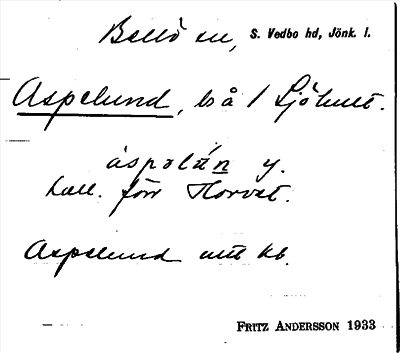 Bellö sn, S. Vedbo hd, Jönk. l.
Aspelund, bå / Sjöhult.
áspəlán y.
kall. förr Horvet.
Aspelund utt kb.
FRITZ ANDERSSON 1933